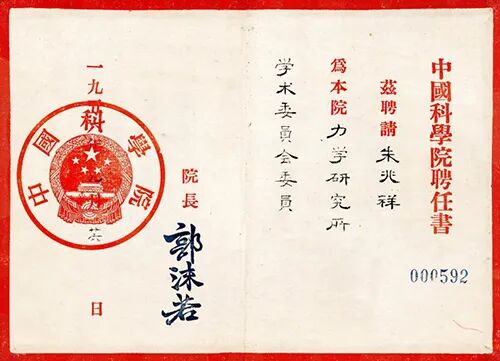 中國科學院聘任書
000592
茲聘請朱兆祥
爲本院力学研究所
学术委員会委員
院長
郭沫若
一九
日
中國科學院